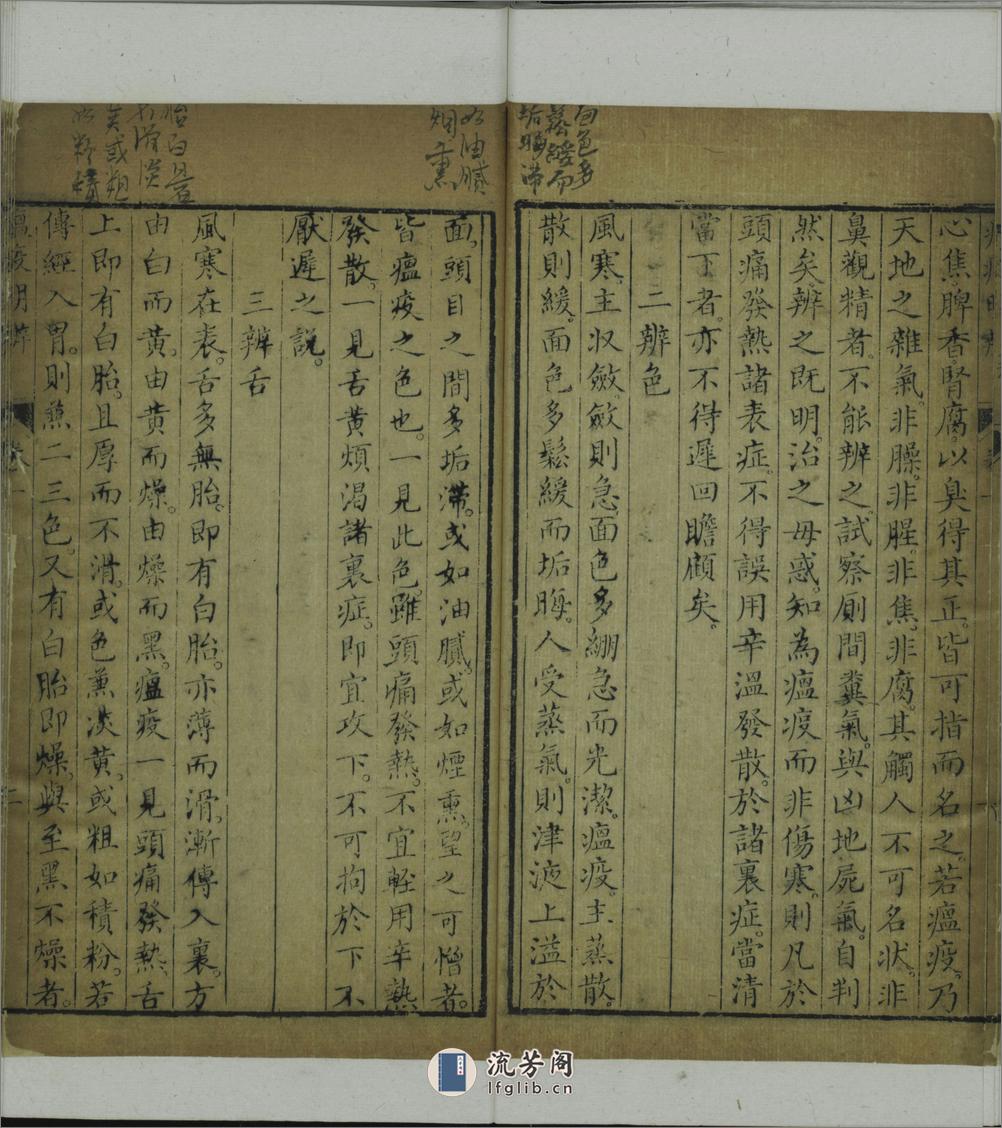 面色多
鬆緩而
垢晦滯
心焦。脾香。腎腐。以臭得其正。皆可指而名之。若瘟疫。乃
天地之雜氣。非臊。非腥。非焦。非腐。其觸人不可名狀。非
鼻觀精者。不能辨之。試察厠間糞氣。與凶地屍氣。自判
然矣。辨之既明。治之毋惑。知為瘟疫而非傷寒。則凡於
頭痛發熱諸表症。不得誤用辛溫發散。於諸裏症。當清
當下者。亦不得遲回瞻顧矣。
二辨色
風寒。主収斂。斂則急。面色多繃急而光潔。瘟疫。主蒸散。
散則緩。面色多鬆緩而垢晦。人受蒸氣。則津液上溢於
如油膩
烟熏
面。頭目之間多垢滯。或如油膩。或如煙熏。望之可憎者。
皆瘟疫之色也。一見此色。雖頭痛發熱。不宜輕用辛熱
發散。一見舌黄煩渴諸裏症。即宜攻下。不可拘於下不
厭遲之說。
三辨舌
胎白
風寒在表。舌多無胎。即有白胎。亦薄而滑。漸傳入裏。方
由白而黄。由黄而燥。由燥而黑。瘟疫一見頭痛發熱。舌
上即有白胎。且厚而不滑。或色薰淡黄。或粗如積粉。若
傳經入胃。則薫二三色。又有白胎即燥。與至黑不燥者。
瘟疫明辨
卷一
二
流芳阁
lfglib.cn